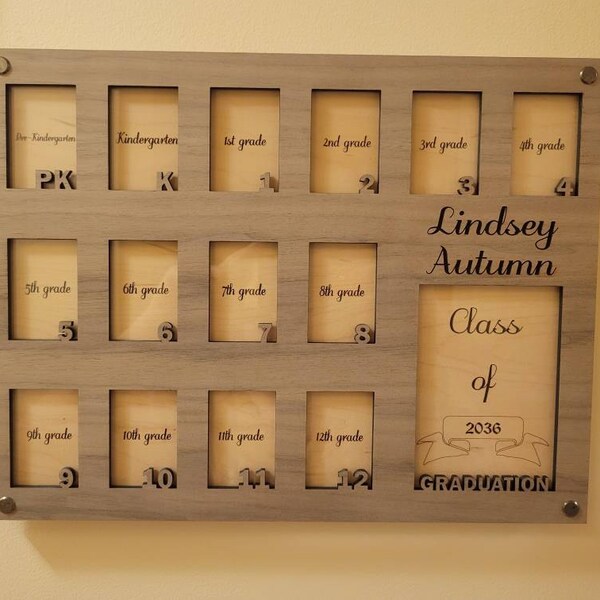 Pre-Kindergarten
PK
Kindergarten
K
1st grade
1
2nd grade
2
3rd grade
3
4th grade
4
Lindsey
Autumn
5th grade
5
6th grade
6
7th grade
7
8th grade
8
Class
of
2036
GRADUATION
9th grade
9
10th grade
10
11th grade
11
12th grade
12